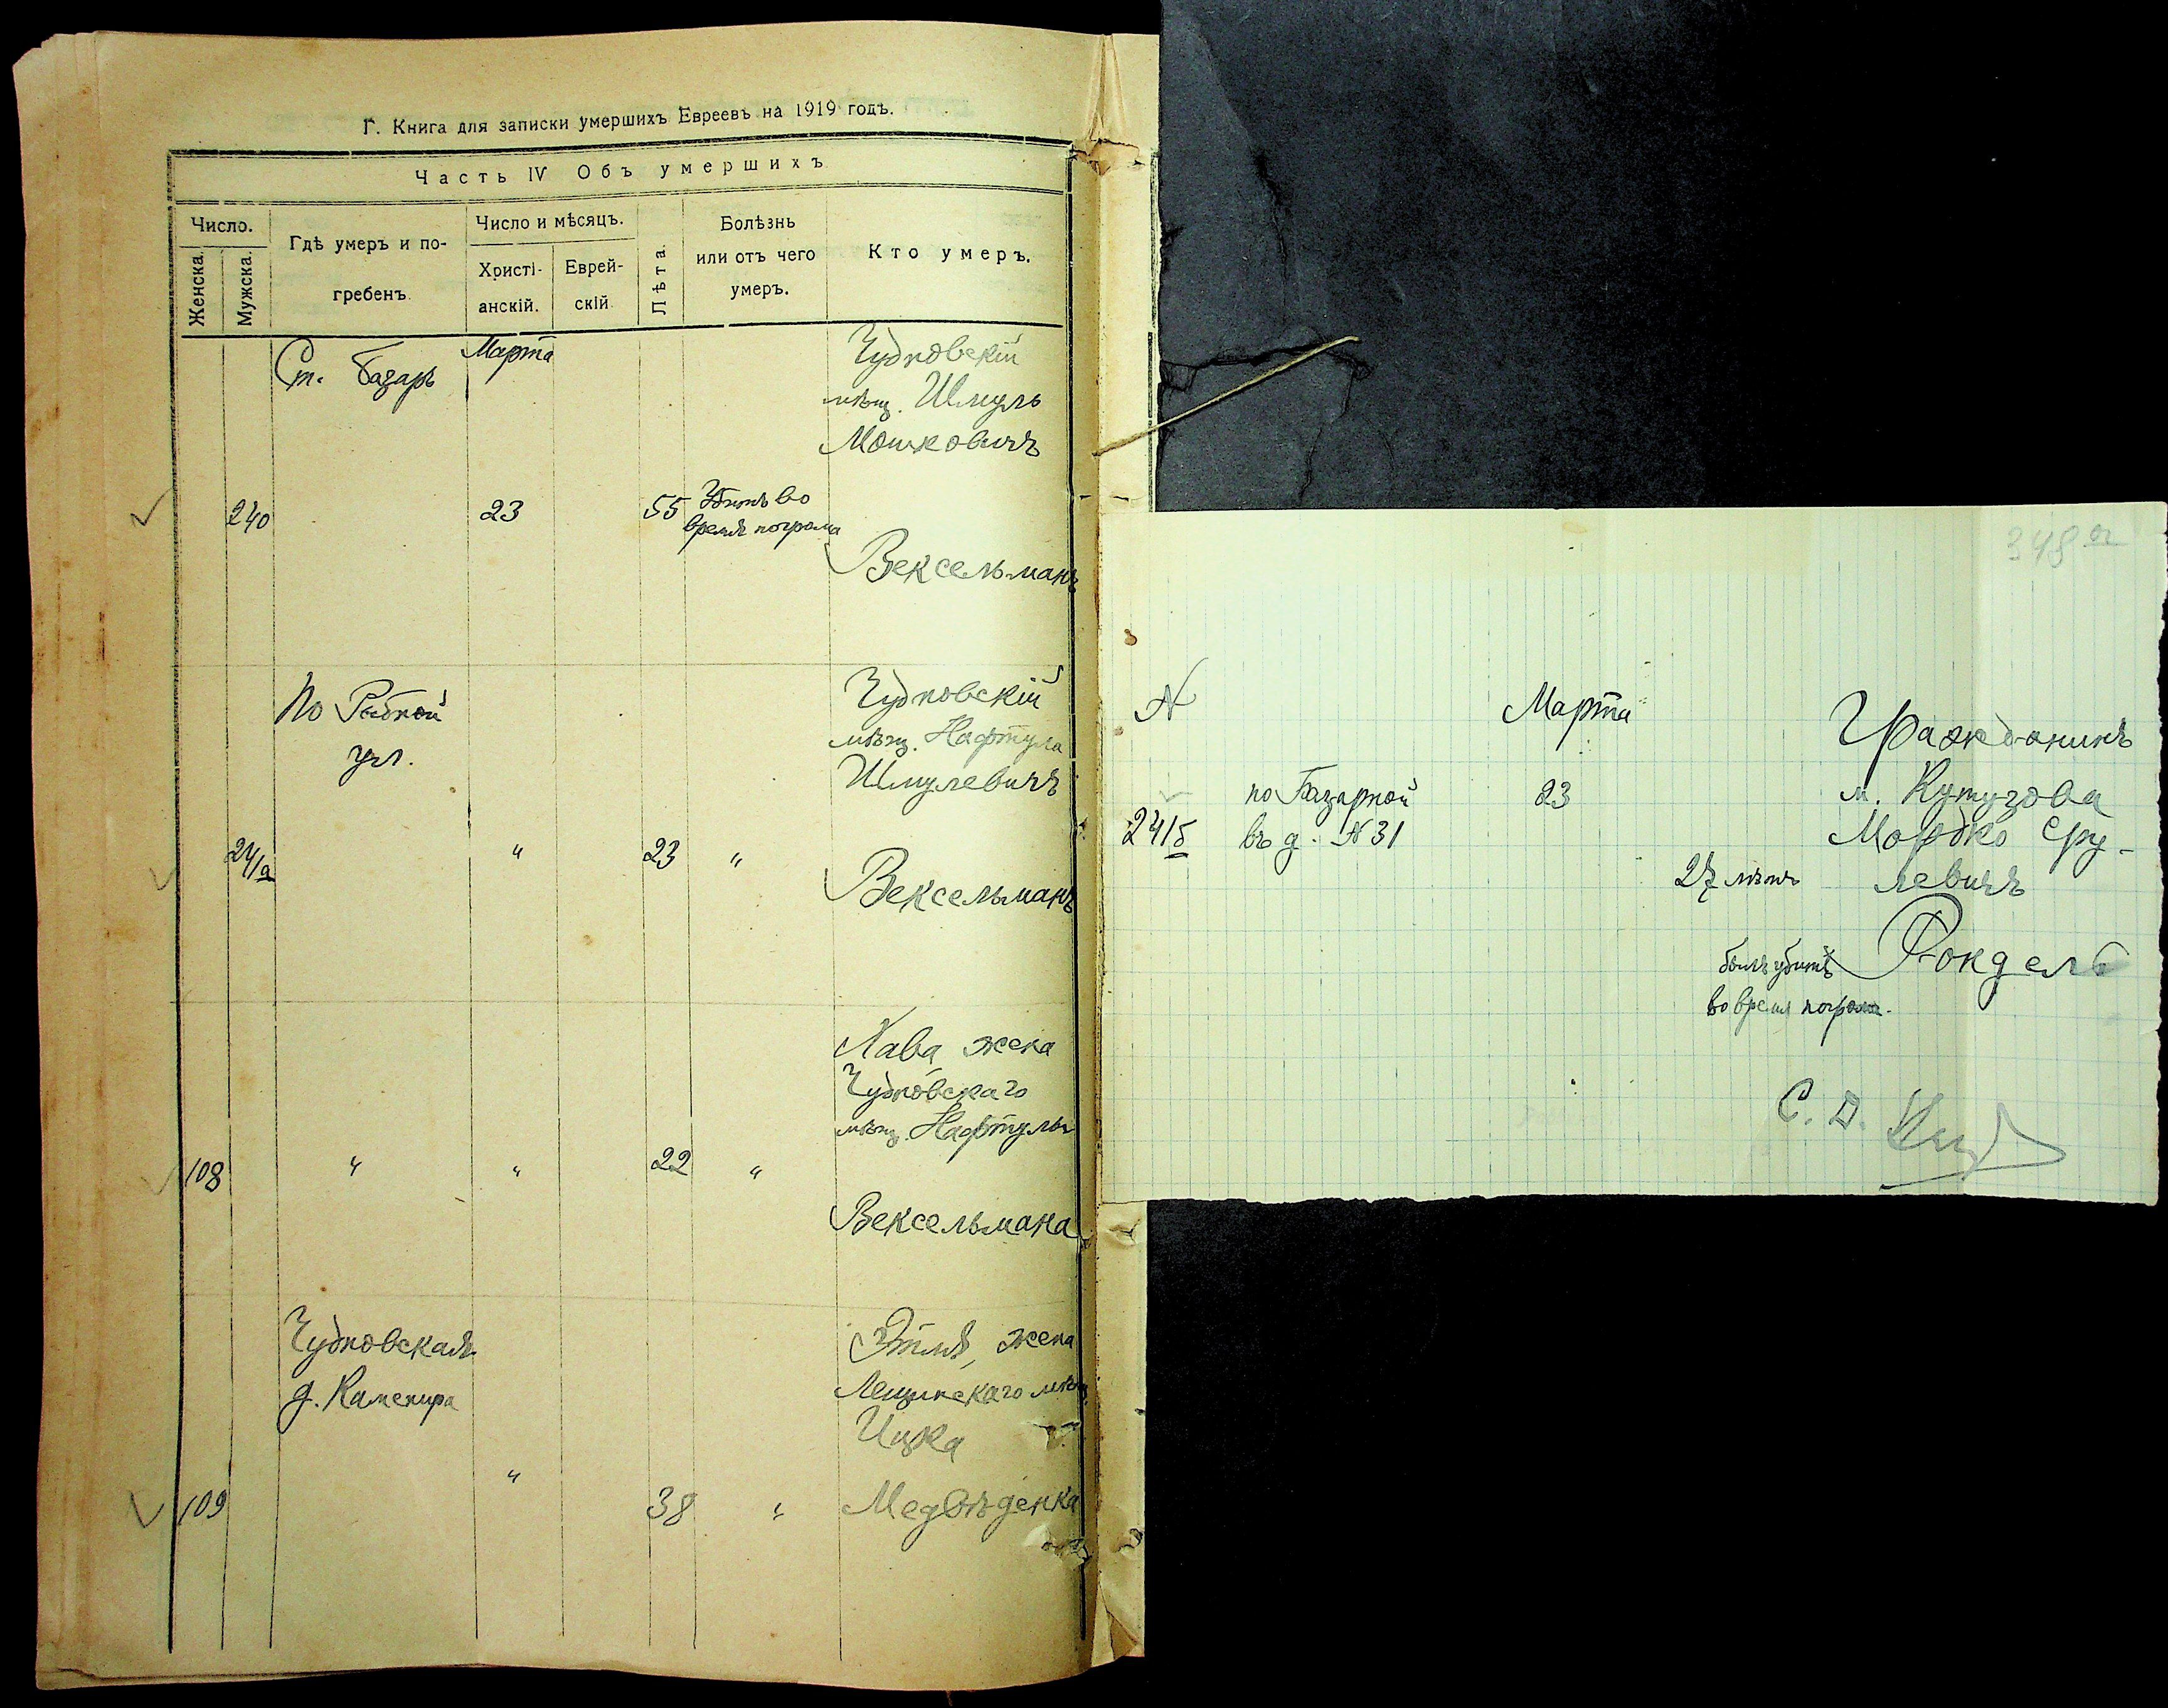 Г. Книга для записки умершихъ Евреевъ на 1919 годъ.
Часть IV Объ умершихъ
Число.
Женска.
Мужска.
Гдѣ умеръ и по-
гребенъ.
Число и мѣсяцъ.
Христі-
анскій.
Еврей-
скій
Лѣта.
Болѣзнь
или отъ чего
умеръ.
Кто умеръ.
Ст. Базаръ
Марта
Чудновскій
мѣщ. Шмуль
Мошковичъ
240
23
55
Убитъ во
время погрома
Вексельманъ
По Рыбной
ул.
Чудновскій
мѣщ. Нафтула
Шмулевичъ
241а
"
23
"
Вексельманъ
Хава жена
Чудновскаго
мѣщ. Нафтулы
108
"
"
22
"
Вексельмана
Чудновская
д. Каменира
Этля, жена
мѣщ.
Ицка
109
"
38
"
Медвѣденка
348 а
N
Марта
Гражданинъ
м. Кутузова
Мордко Сру-
левичъ
241б
по Базарной
въ д. N 31
23
27 лѣтъ
Рондель
былъ убитъ
во время погрома.
С. Д.